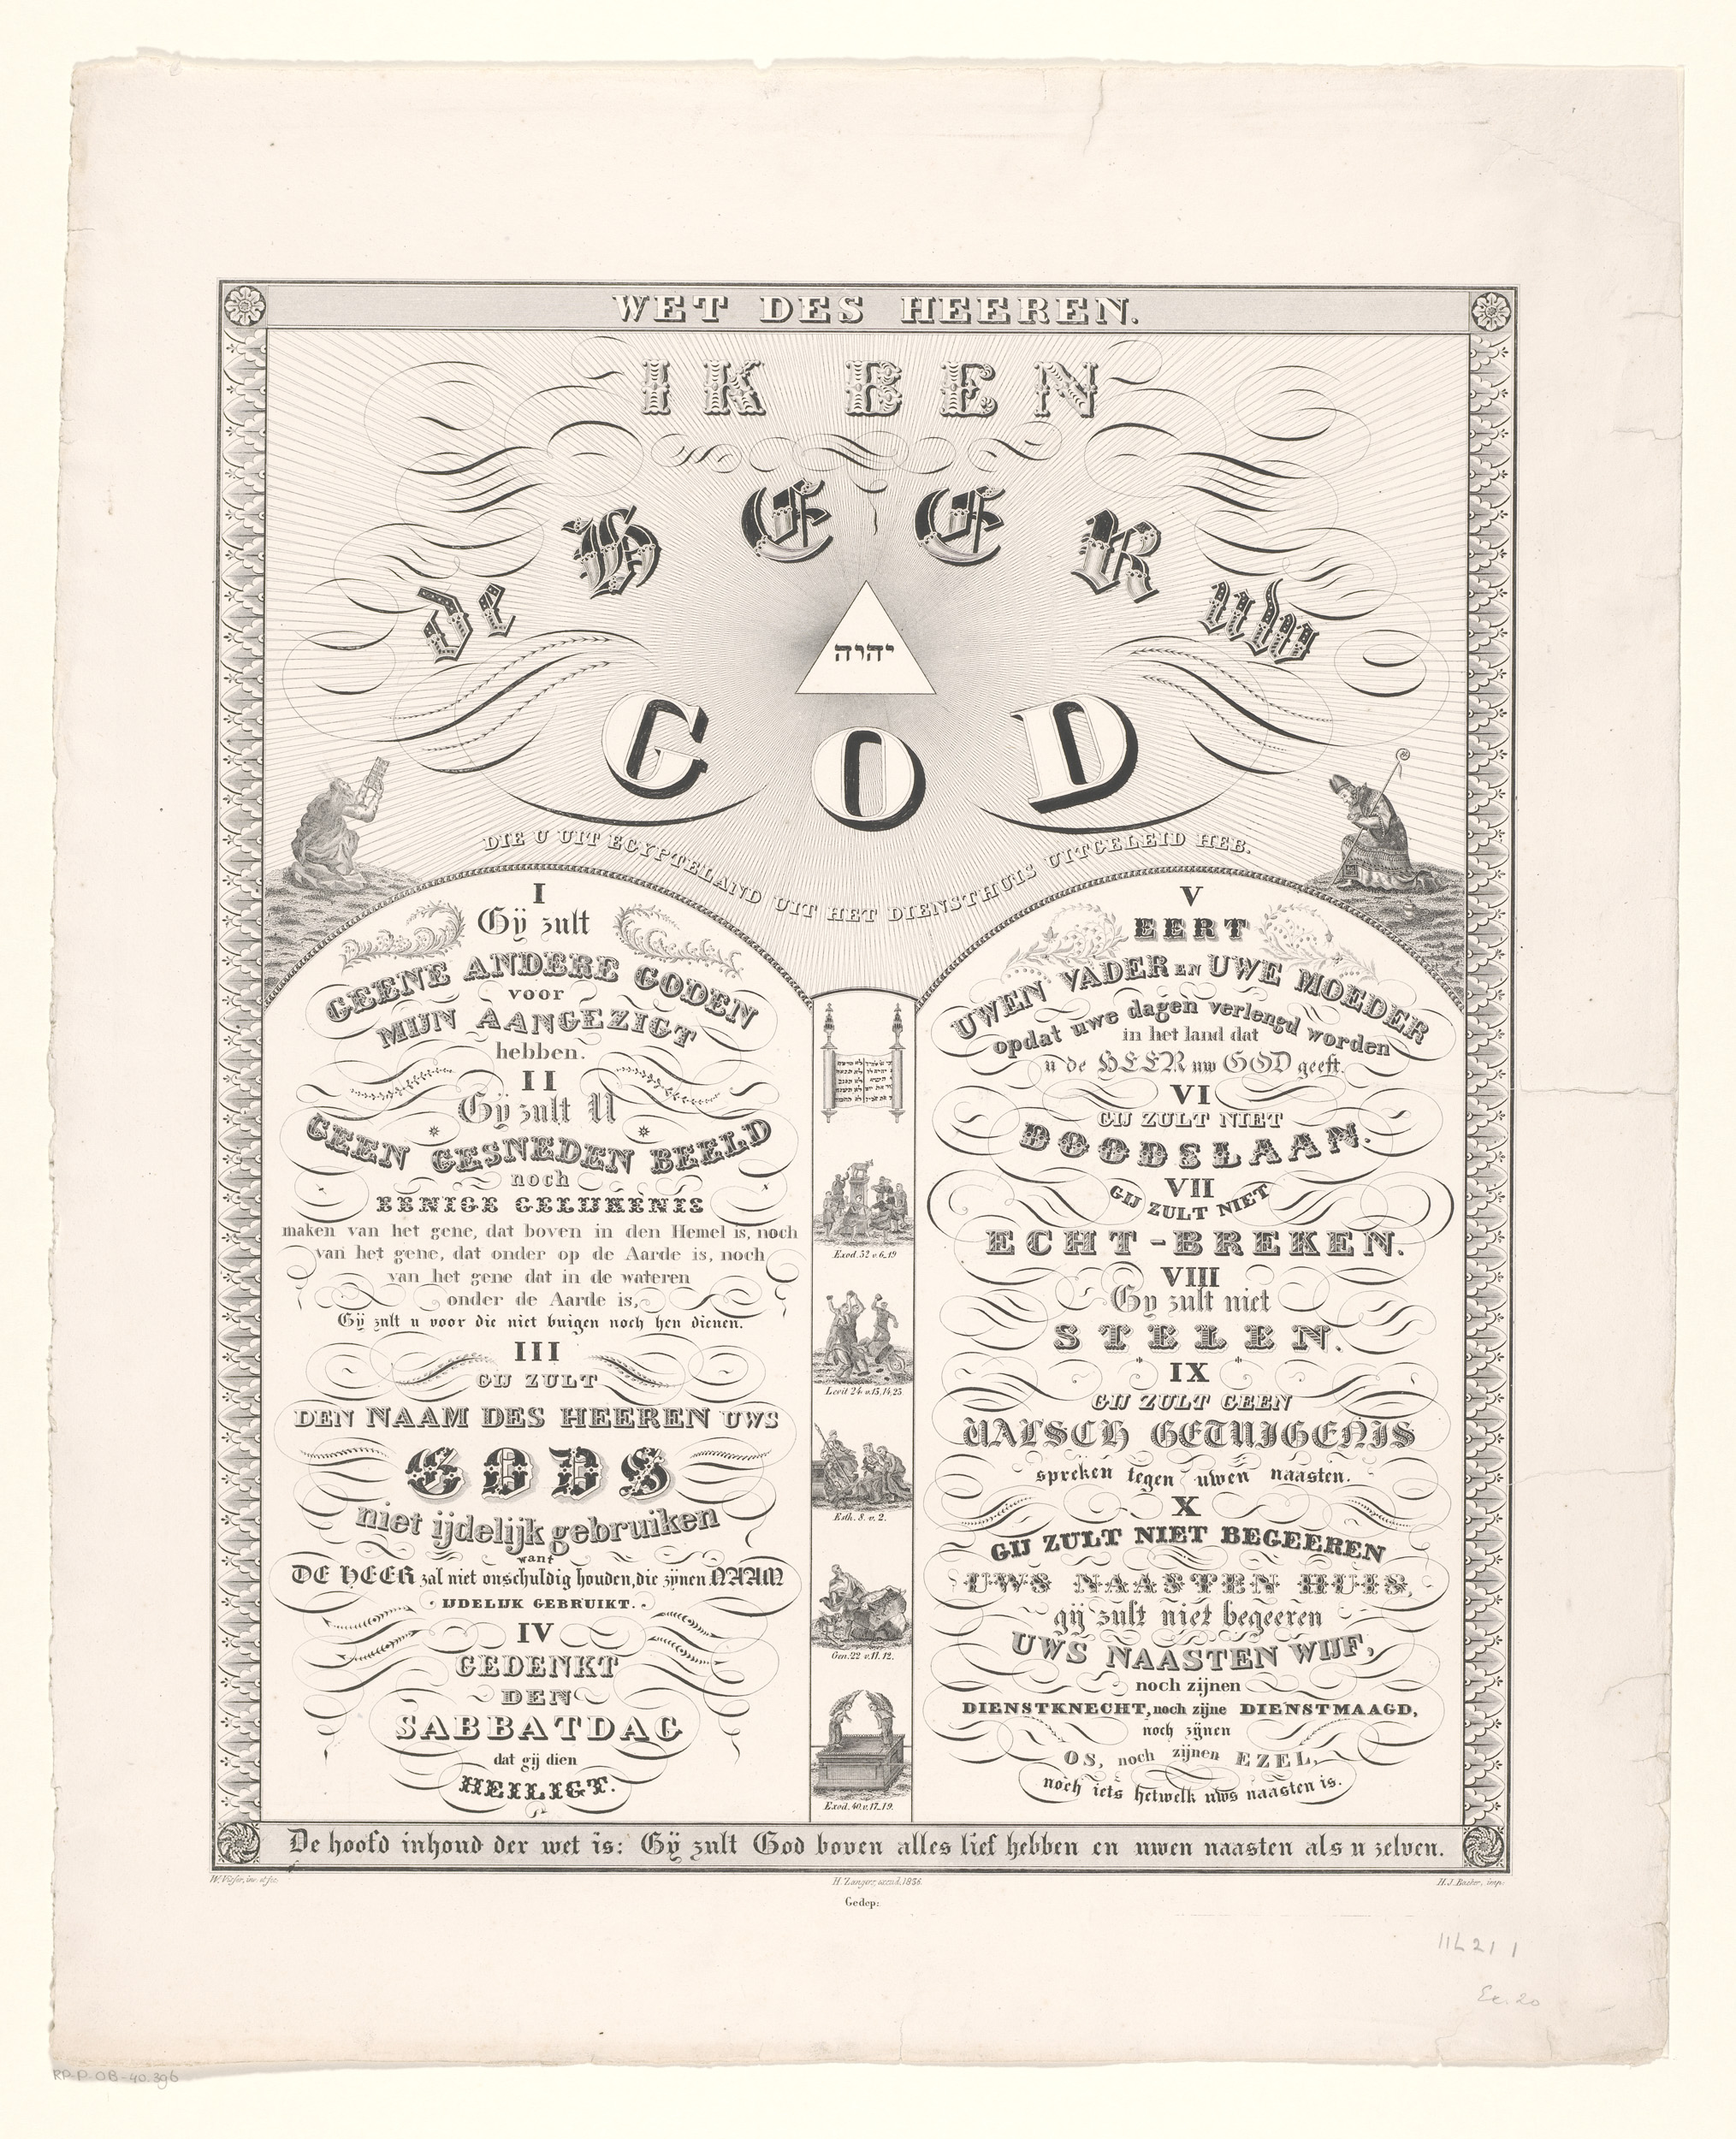 WET DES HEEREN.
IK BEN
de HEER uw
יהוה
GOD
DIE U UIT EGYPTELAND UIT HET DIENSTHUIS UITGELEID HEB.
I
Gÿ zult
GEENE ANDERE GODEN
voor
MIJN AANGEZIGT
hebben.
II
Gÿ zult U
GEEN GESNEDEN BEELD
noch
EENIGE GELIJKENIS
maken van het gene, dat boven in den Hemel is, noch
van het gene, dat onder op de Aarde is, noch
van het gene dat in de wateren
onder de Aarde is,
Gÿ zult u voor die niet buigen noch hen dienen.
III
GIJ ZULT
DEN NAAM DES HEEREN UWS
GODS
niet ijdelijk gebruiken
want
DE HEER zal niet onschuldig houden, die zÿnen NAAM
IJDELIJK GEBRUIKT.
IV
GEDENKT
DEN
SABBATDAG
dat gij dien
HEILIGT.
Exod. 32 v. 6_19
Levit 24. v. 13, 14, 23
Esth. 8. v. 2.
Gen. 22 v. 11. 12.
Exod. 40. v. 17_19.
V
EERT
UWEN VADER EN UWE MOEDER
opdat uwe dagen verlengd worden
in het land dat
u de HEER uw GOD geeft.
VI
GIJ ZULT NIET
DOODSLAAN.
VII
GIJ ZULT NIET
ECHT-BREKEN.
VIII
Gy zult niet
STELEN.
IX
GIJ ZULT GEEN
VALSCH GETUIGENIS
spreken tegen uwen naasten.
X
GIJ ZULT NIET BEGEEREN
UWS NAASTEN HUIS,
gij zult niet begeeren
UWS NAASTEN WIJF,
noch zijnen
DIENSTKNECHT, noch zijne DIENSTMAAGD,
noch zÿnen
OS, noch zijnen EZEL,
noch iets hetwelk uws naasten is.
De hoofd inhoud der wet is: Gÿ zult God boven alles lief hebben en uwen naasten als u zelven.
W. Visser, inv. et fec.
H. Zangers, excud. 1836.
H. J. Backer, imp.
Gedep:
11L21 1
Ex. 20
RP-P-OB-40.396